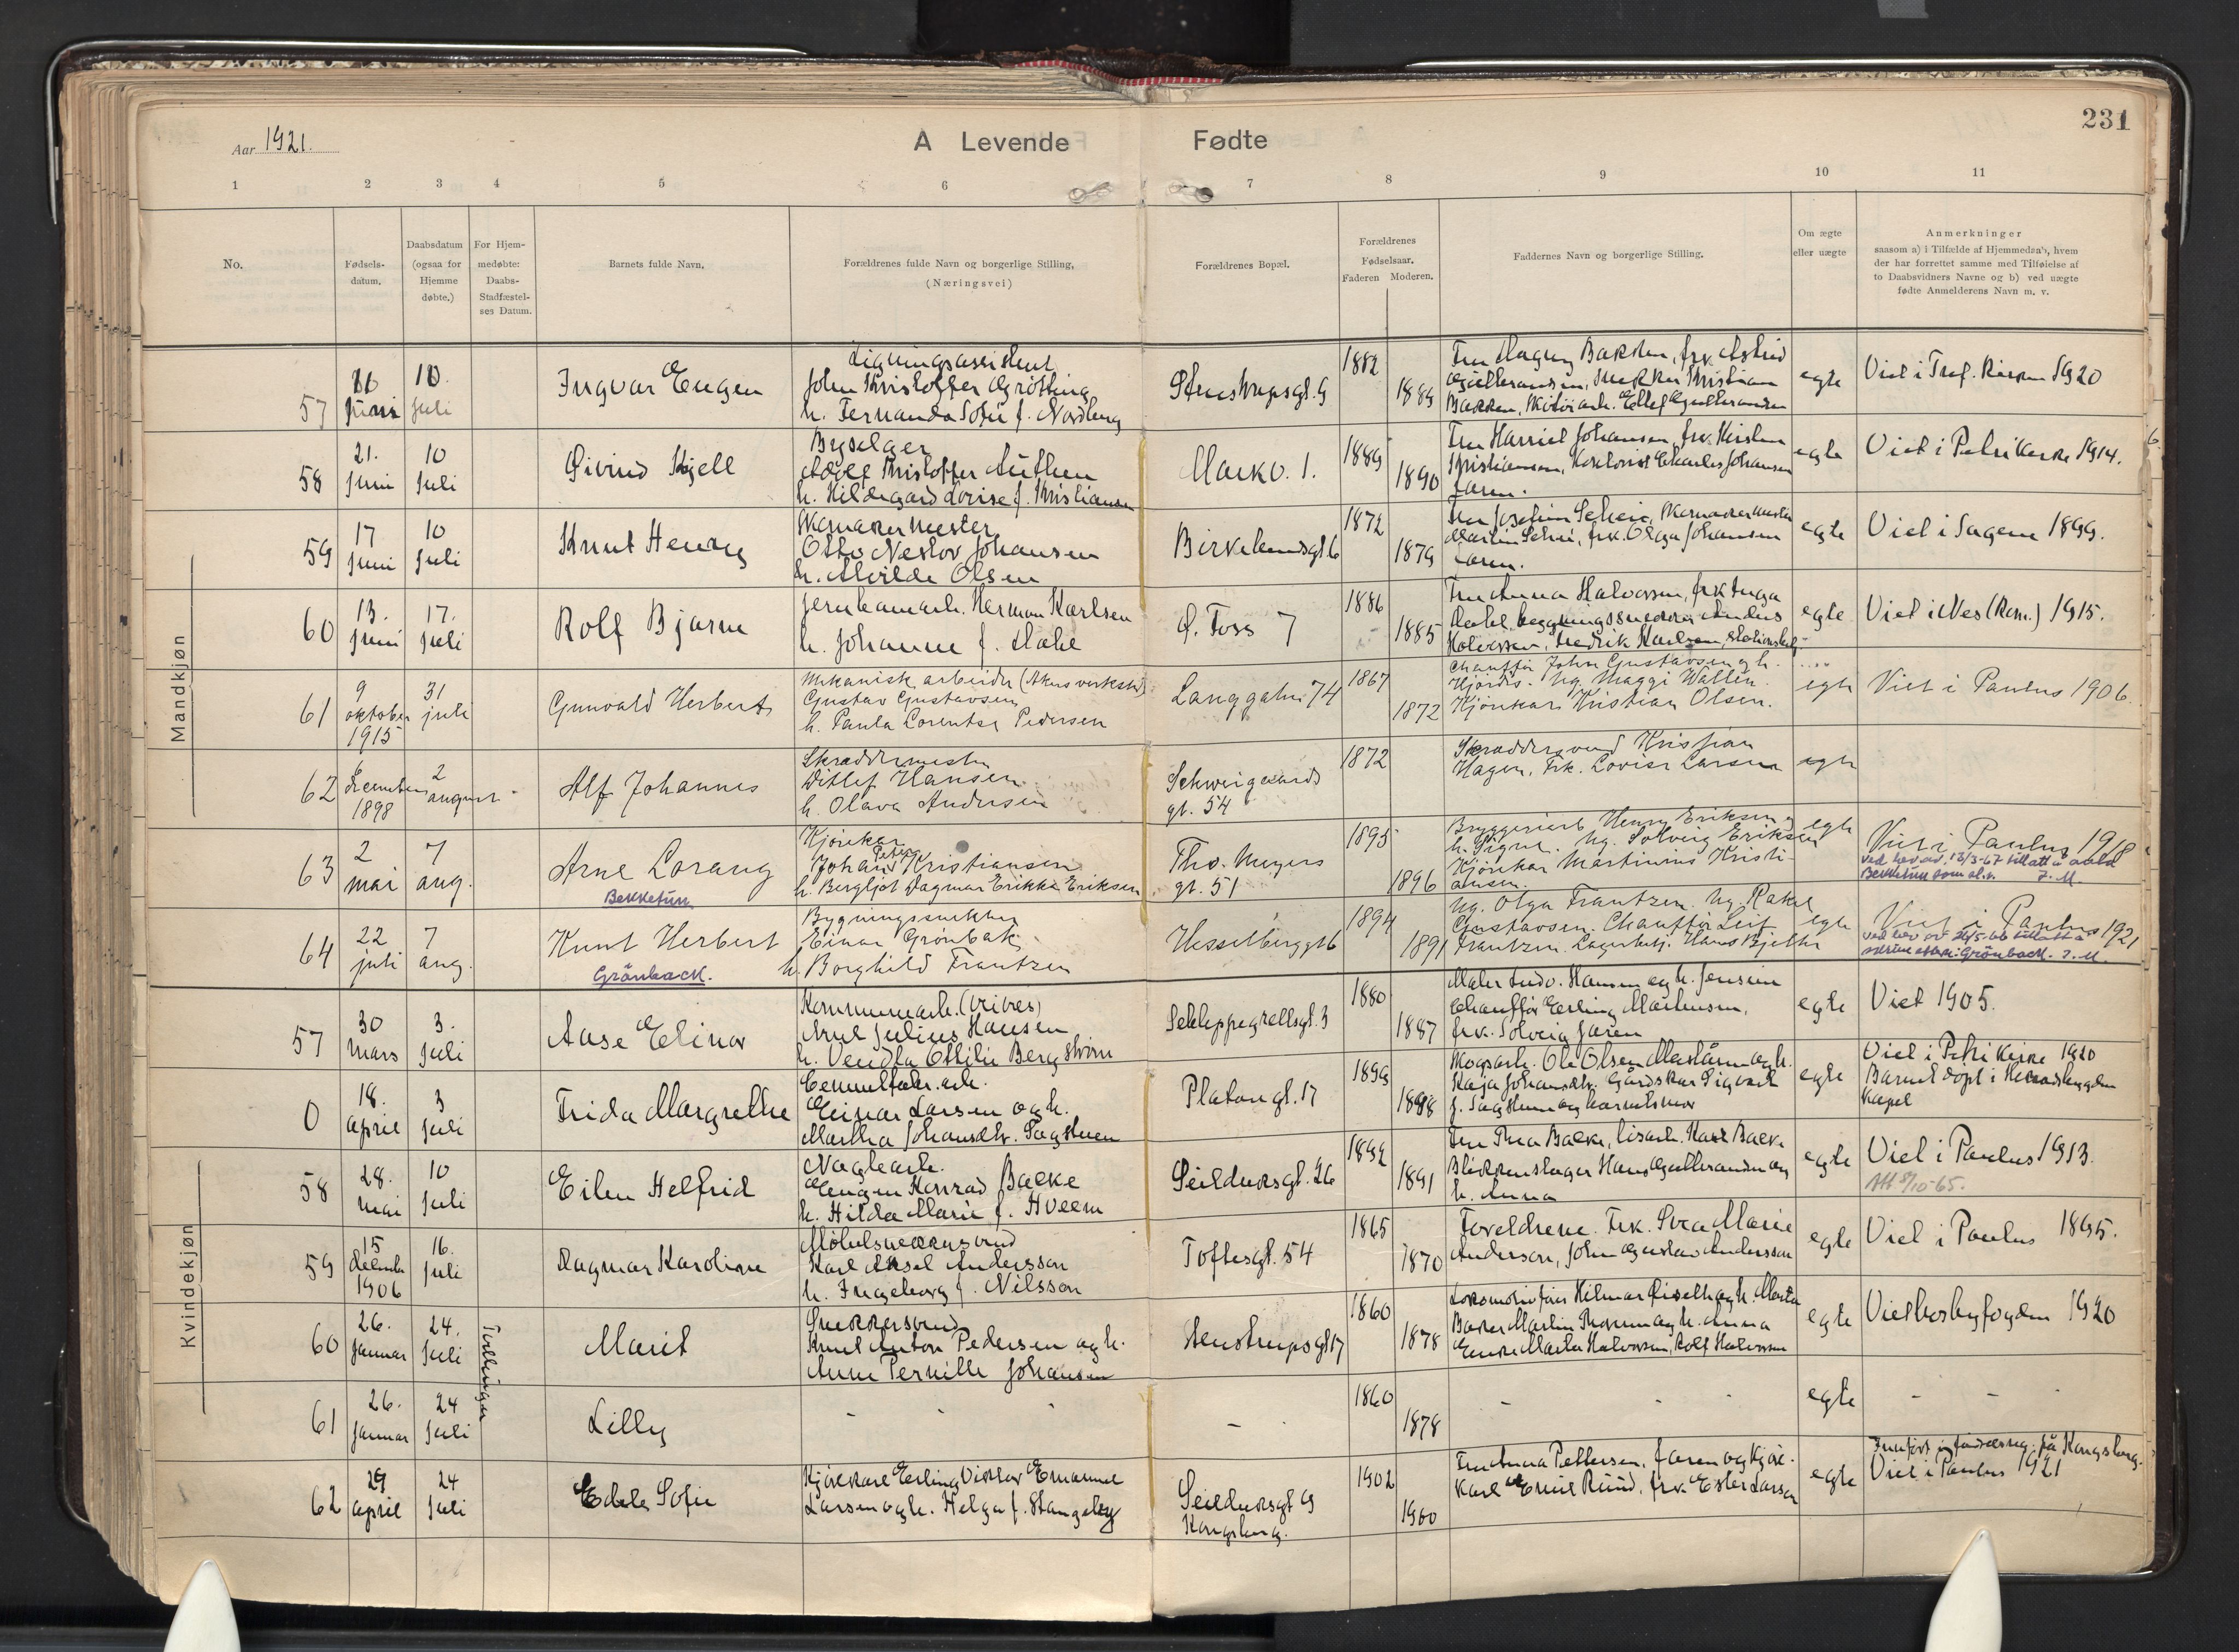 231
Aar 1921.
A Levende Fødte
1 2 3 4 5 6 7 8 9 10 11
No.
Fødsels-
datum.
Daabsdatum
(ogsaa for
Hjemme
døbte.)
For Hjem-
medøbte:
Daabs-
Stadfæstel-
ses Datum.
Barnets fulde Navn.
Forældrenes fulde Navn og borgerlige Stilling.
(Næringsvei)
Forældrenes Bopæl.
Forældrenes
Fødselsaar.
Faderen Moderen.
Faddernes Navn og borgerlige Stilling.
Om ægte
eller uægte
Anmerkninger
saasom a) i Tilfælde af Hjemmedaab, hvem
der har forrettet samme med Tilføielse af
to Daabsvidners Navne og b) ved uægte
fødte Anmelderens Navn m. v.
Mandkjøn
57
juni
10.
juli
Ingvar Eugen
Ligningsassistent
John Kristoffer Grøtting
h. Fernanda Sofie f. Nordberg
Stenstrupsgt. 9
1882
1889
egte
Viet i 1920
58
21.
juni
10
juli
Øivind Kjell
Byselger
Adolf Kristoffer Authen
h. Hildegard Lovise f. Kristiansen
Markv. 1.
1889
1890
Fru Harriet Johansen, frk. Kirsten
Kristiansen, Charles Johansen
faren.
egte
Viet i Petri Kirke 1914.
59
17
juni
10
juli
Knut Henry
Skomakermester
Otto Nestor Johansen
h. Alvilde Olsen
Birkelundsgt. 6
1872
1879
frk. Olga Johansen
faren.
egte
Viet i Sagene 1899.
60
13.
juni
17.
juli
Rolf Bjarne
jernbanearb. Herman Karlsen
h. Johanne f. Dahl
Ø. Foss 7
1886
1885
Fru Anna Halvorsen, frk Inga
Dahl, bygningssnedker Anders
Halvorsen, Fredrik Karlsen, stationsbetj.
egte
Viet i Nes (Rom.) 1915.
61
9
oktober
1915
31
juli
Gunvald Herbert
Mekanisk arbeider (Akers verksted)
Gustav Gustavsen
h. Paula Lorentse Pedersen
Langgaten 74
1867
1872
Chauffør John Gustavsen og h.
Hjørdis. Ug. Maggi Wallin.
Kjørekar Kristian Olsen.
egte
Viet i Paulus 1906.
62
6
December
1898
2
august
Alf Johannes
Skræddermester
Ditlef Hansen
h. Olava Andersen
Schweigaards
gt. 54
1872
Skræddersvend Kristian
Hagen, Frk. Lovise Larsen
egte
63
2
mai
7
aug.
Arne Lorang
Bekketun
Kjørekar
Johan Peter Kristiansen
h. Bergljot Dagmar Erikke Eriksen
Tho. Meyers
gt. 51
1895
1896
Bryggeriarb Henry Eriksen og
h. Signe. Ug. Solveig Eriksen
Kjørekar Martinius Kristi-
ansen.
egte
Viet i Paulus 1918
ved bev av 13/3-67 tillatt å anta
Bekketun som sl.n. J. M.
64
22
juli
7
aug.
Knut Herbert
Grönback.
Bygningssnekker
Einar Grønbak
h. Borghild Frantzen
Hesselberggt 6
1894
1891
Ug. Olga Frantzen. Ug. Rakel
Gustavsen. Chauffør Leif
Frantzen. Lagerbetj. Hans Bjelke
egte
Viet i Paulus 1921
skrive etn.: Grönback. J. M.
Kvindekjøn
57
30
mars
3.
juli
Aase Elinor
Kommunearb. (veives)
Arnt Julius Hansen
h. Vendla Ottilie Bergstrøm
Schleppegrellsgt. 3
1880
1887
Maler Ludv. Hansen og h. Jensine
Chauffør Erling Martinsen,
frk. Solveig faren
egte
Viet 1905.
0
18.
april
3
juli
Frida Margrethe
Cementfabr. arb.
Einar Larsen og h.
Martha Johansdtr. Sagstuen
Platougt. 17
1899
1898
Skogsarb. Ole Olsen og h.
Kaja Johansdtr. Gårdskar Sigvart
J. Sagstuen og barnets mor
egte
Viet i Petri Kirke 1920
Barnet døpt i
Kapel
58
28.
mai
10
juli
Eilen Helfrid
Naglearb.
Eugen Konrad Bække
h. Hilda Marie f. Hveem
Seilduksgt. 26
1892
1891
Fru Thea Bække, Karl Bække
Blikkenslager Hans Gulbrandsen og
h. Anna
egte
Viet i Paulus 1913.
Att 8/10-65.
59
15
1906
16.
juli
Dagmar Karoline
Møbelsnekkersvend
Karl Aksel Andersson
h. Ingeborg f. Nilsson
Toftesgt. 54
1865
1870
Foreldrene. Frk. Svea Marie
Anderson, John Gustav Andersson
egte
Viet i Paulus 1895.
60
26.
januar
24.
juli
Tvillinger
Marit
Snekkersvend
Knut Anton Pedersen og h.
Anne Pernille Johansen
Stenstrupsgt 17
1860
1878
Lokomotivfører Hilmar og h. Marta
Baker Martin og h. Anna
Enke Marta Halvorsen, Rolf Halvorsen
egte
Viet hos byfogden 1920
61
26.
januar
24
juli
Lilly
- - -
-
1860
1878
- - -
egte
- - -
62
29
april
24
juli
Edele Sofie
Kjørekarl Erling Viktor Emanuel
Larsen og h. Helga f. Stangeby
Seilduksgt 9
Kongsberg.
1902
1900
Fru Anna Pettersen, faren og kjøre-
karl Emil Ruud, frk. Ester Larsen
egte
Innført i fødselsreg. på Kongsberg.
Viet i Paulus 1921